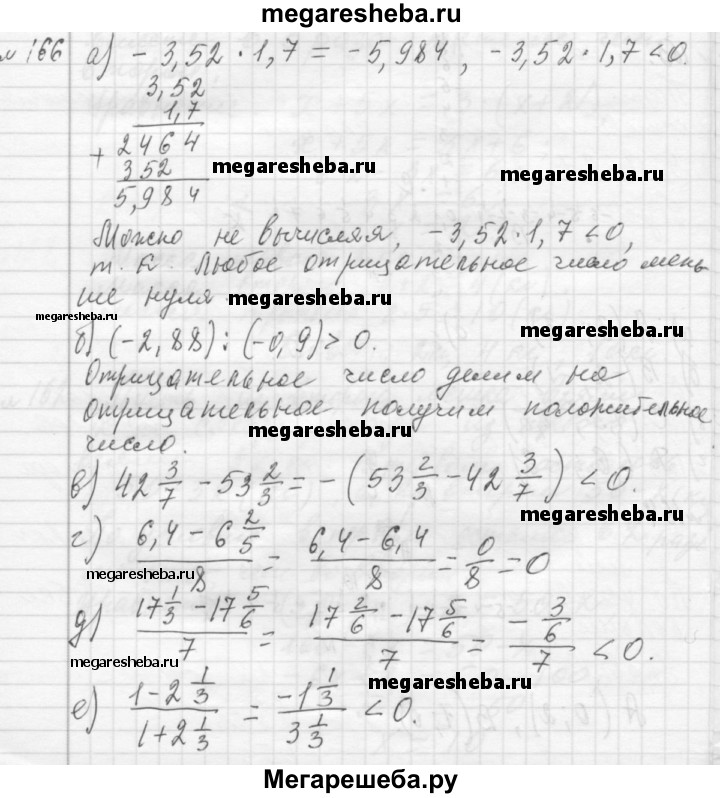 megaresheba.ru
№166 а) -3,52 · 1,7 = -5,984, -3,52 · 1,7 < 0.
3,52
1,7
+ 2464
352
megaresheba.ru
megaresheba.ru
5,984
Можно не вычисляя, -3,52 · 1,7 < 0,
т. к. любое отрицательное число мень
ше нуля.
megaresheba.ru
megaresheba.ru
megaresheba.ru
б) (-2,88) : (-0,9) > 0.
Отрицательное число делим на
отрицательное получим положительное
число.
megaresheba.ru
в) 42 3/7 - 53 2/3 = -(53 2/3 - 42 3/7) < 0.
megaresheba.ru
г) (6,4 - 6 2/5)/8 = (6,4 - 6,4)/8 = 0/8 = 0
megaresheba.ru
д) (17 1/3 - 17 5/6)/7 = (17 2/6 - 17 5/6)/7 = (-3/6)/7 < 0.
megaresheba.ru
megaresheba.ru
е) (1 - 2 1/3)/(1 + 2 1/3) = (-1 1/3)/(3 1/3) < 0.
Мегарешеба.ру